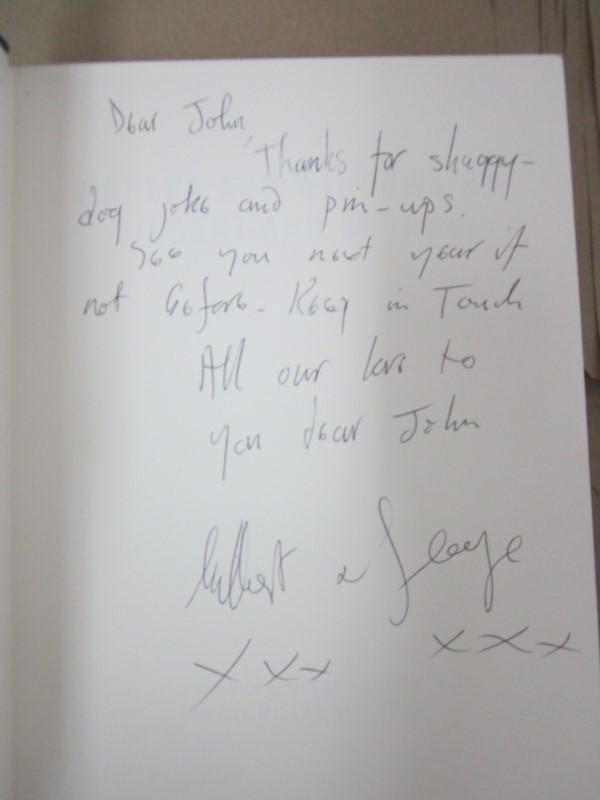 Dear John
Thanks for shaggy-
dog jokes and pin-ups.
See you next year if
not before. Keep in Touch
All our love to
you dear John
Gilbert & George
x x x x x x